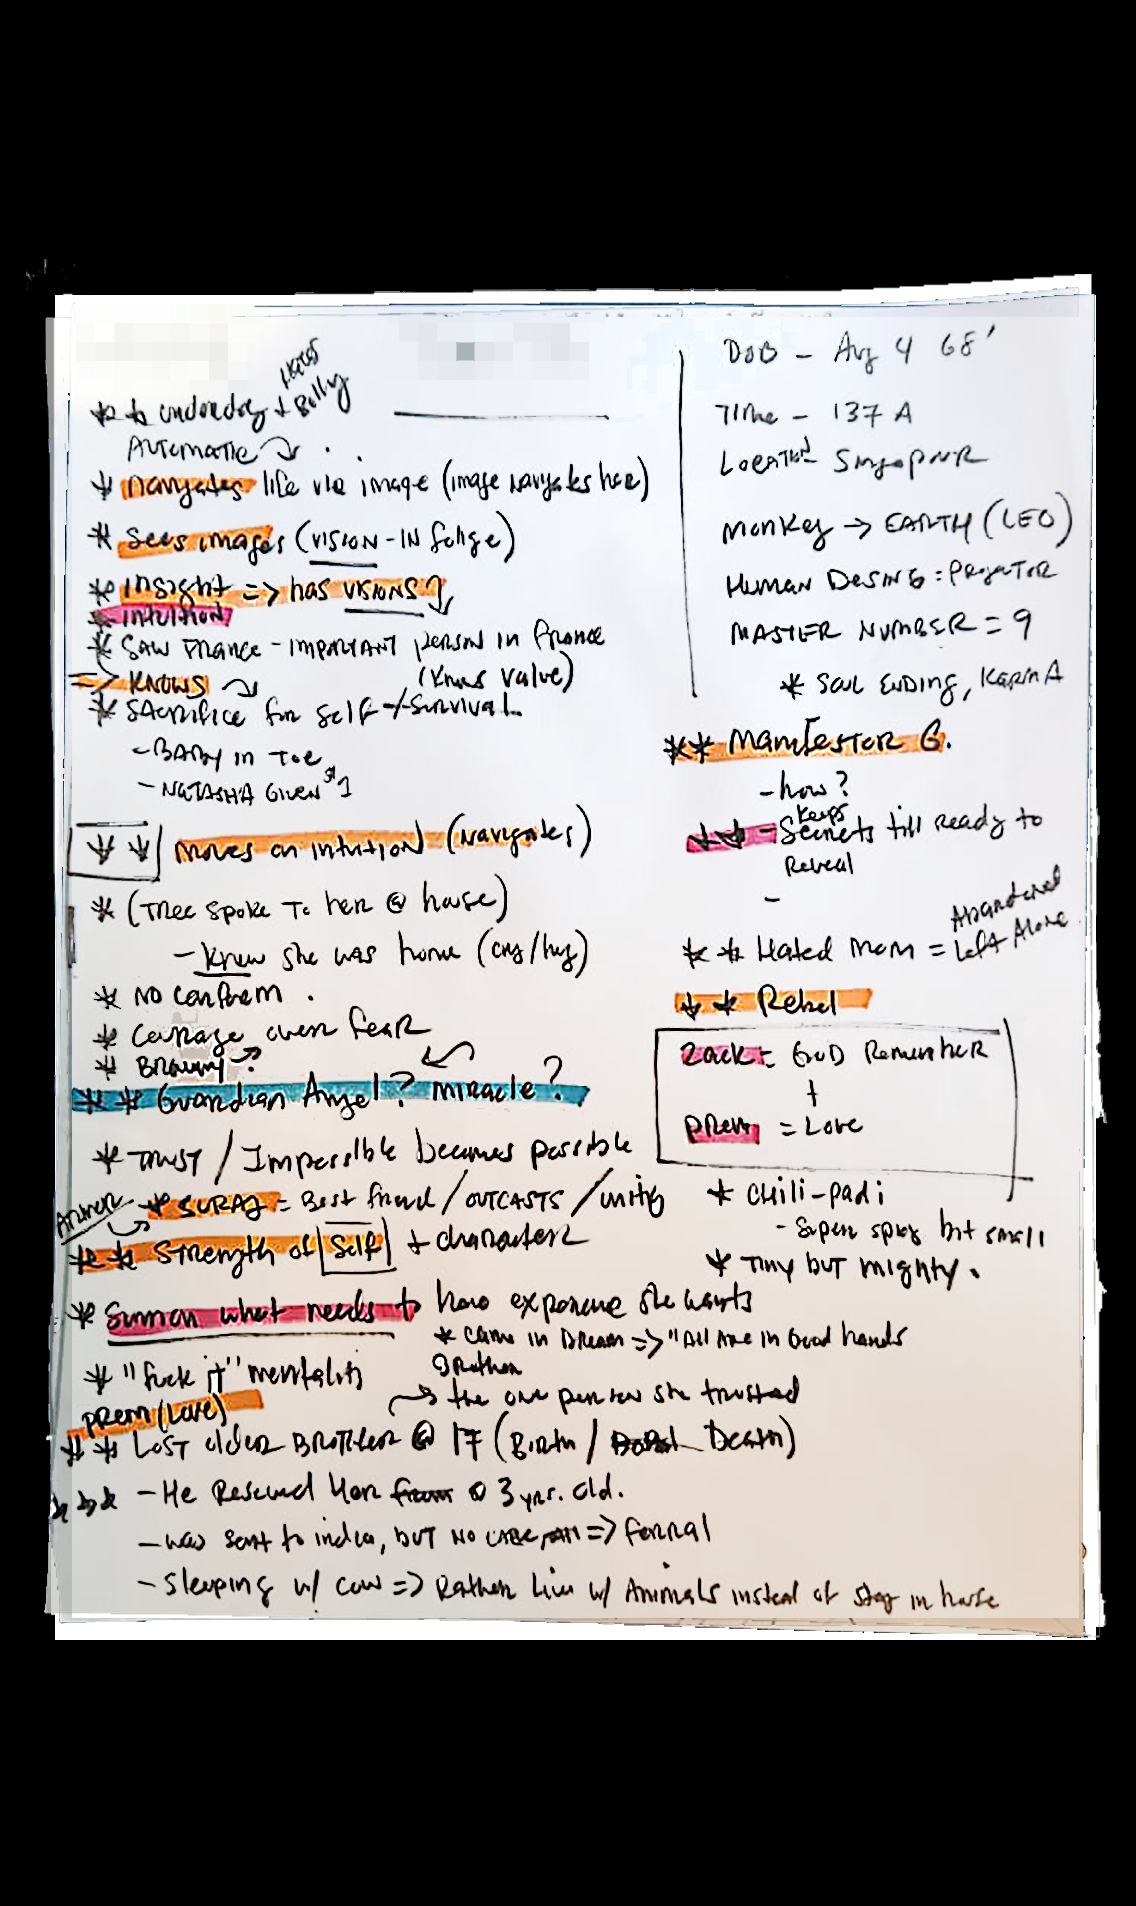 Hates
** underdog + Bully
Automatic
* navigates life via image (image navigates her)
* Sees images (VISION - IN
* Insight => has VISIONS
* intuition
* SAW France - IMPORTANT person in France
=> KNOWS (Knows value)
* SACrifice for Self + Survival.
- BABY in Toe
- NATASHA GIVEN 1st
** moves on intuition (navigates)
* (Tree Spoke To her @ house)
- Knew she was home (cry/hug)
* NO Conform.
* Courage over fear
* Bravery
** Guardian Angel? miracle?
* TRUST / Impossible becomes possible
* SURAJ = Best friend / OUTCASTS / unity
** Strength of Self + character
* Summon what needs to have experience she wants
* came in Dream => "All Are in Good hands
Brother
* "fuck it" mentality
the one person she trusted
Prem (Love)
** LOST older BROTHER @ 17 (Birth / Death)
*** - He Rescued Her from @ 3 yrs. old.
- was sent to india, BUT NO CARE => Ferral
- Sleeping w/ cow => Rather Live w/ Animals instead of stay in house
DOB - Aug 4 68'
Time - 137 A
LOCATION Singapore
Monkey -> EARTH (LEO)
HUMAN DESING: PROJECTOR
MASTER NUMBER = 9
* Soul ENDING, KARMA
** MANIFESTOR G.
- how?
Keeps
** - Secrets till ready to
Reveal
-
Abandoned
** Hated mom = Left Alone
** Rebel
Zack = GOD Remember
+
Prem = Love
* CHili-padi
- Super spicy but small
* Tiny but mighty.